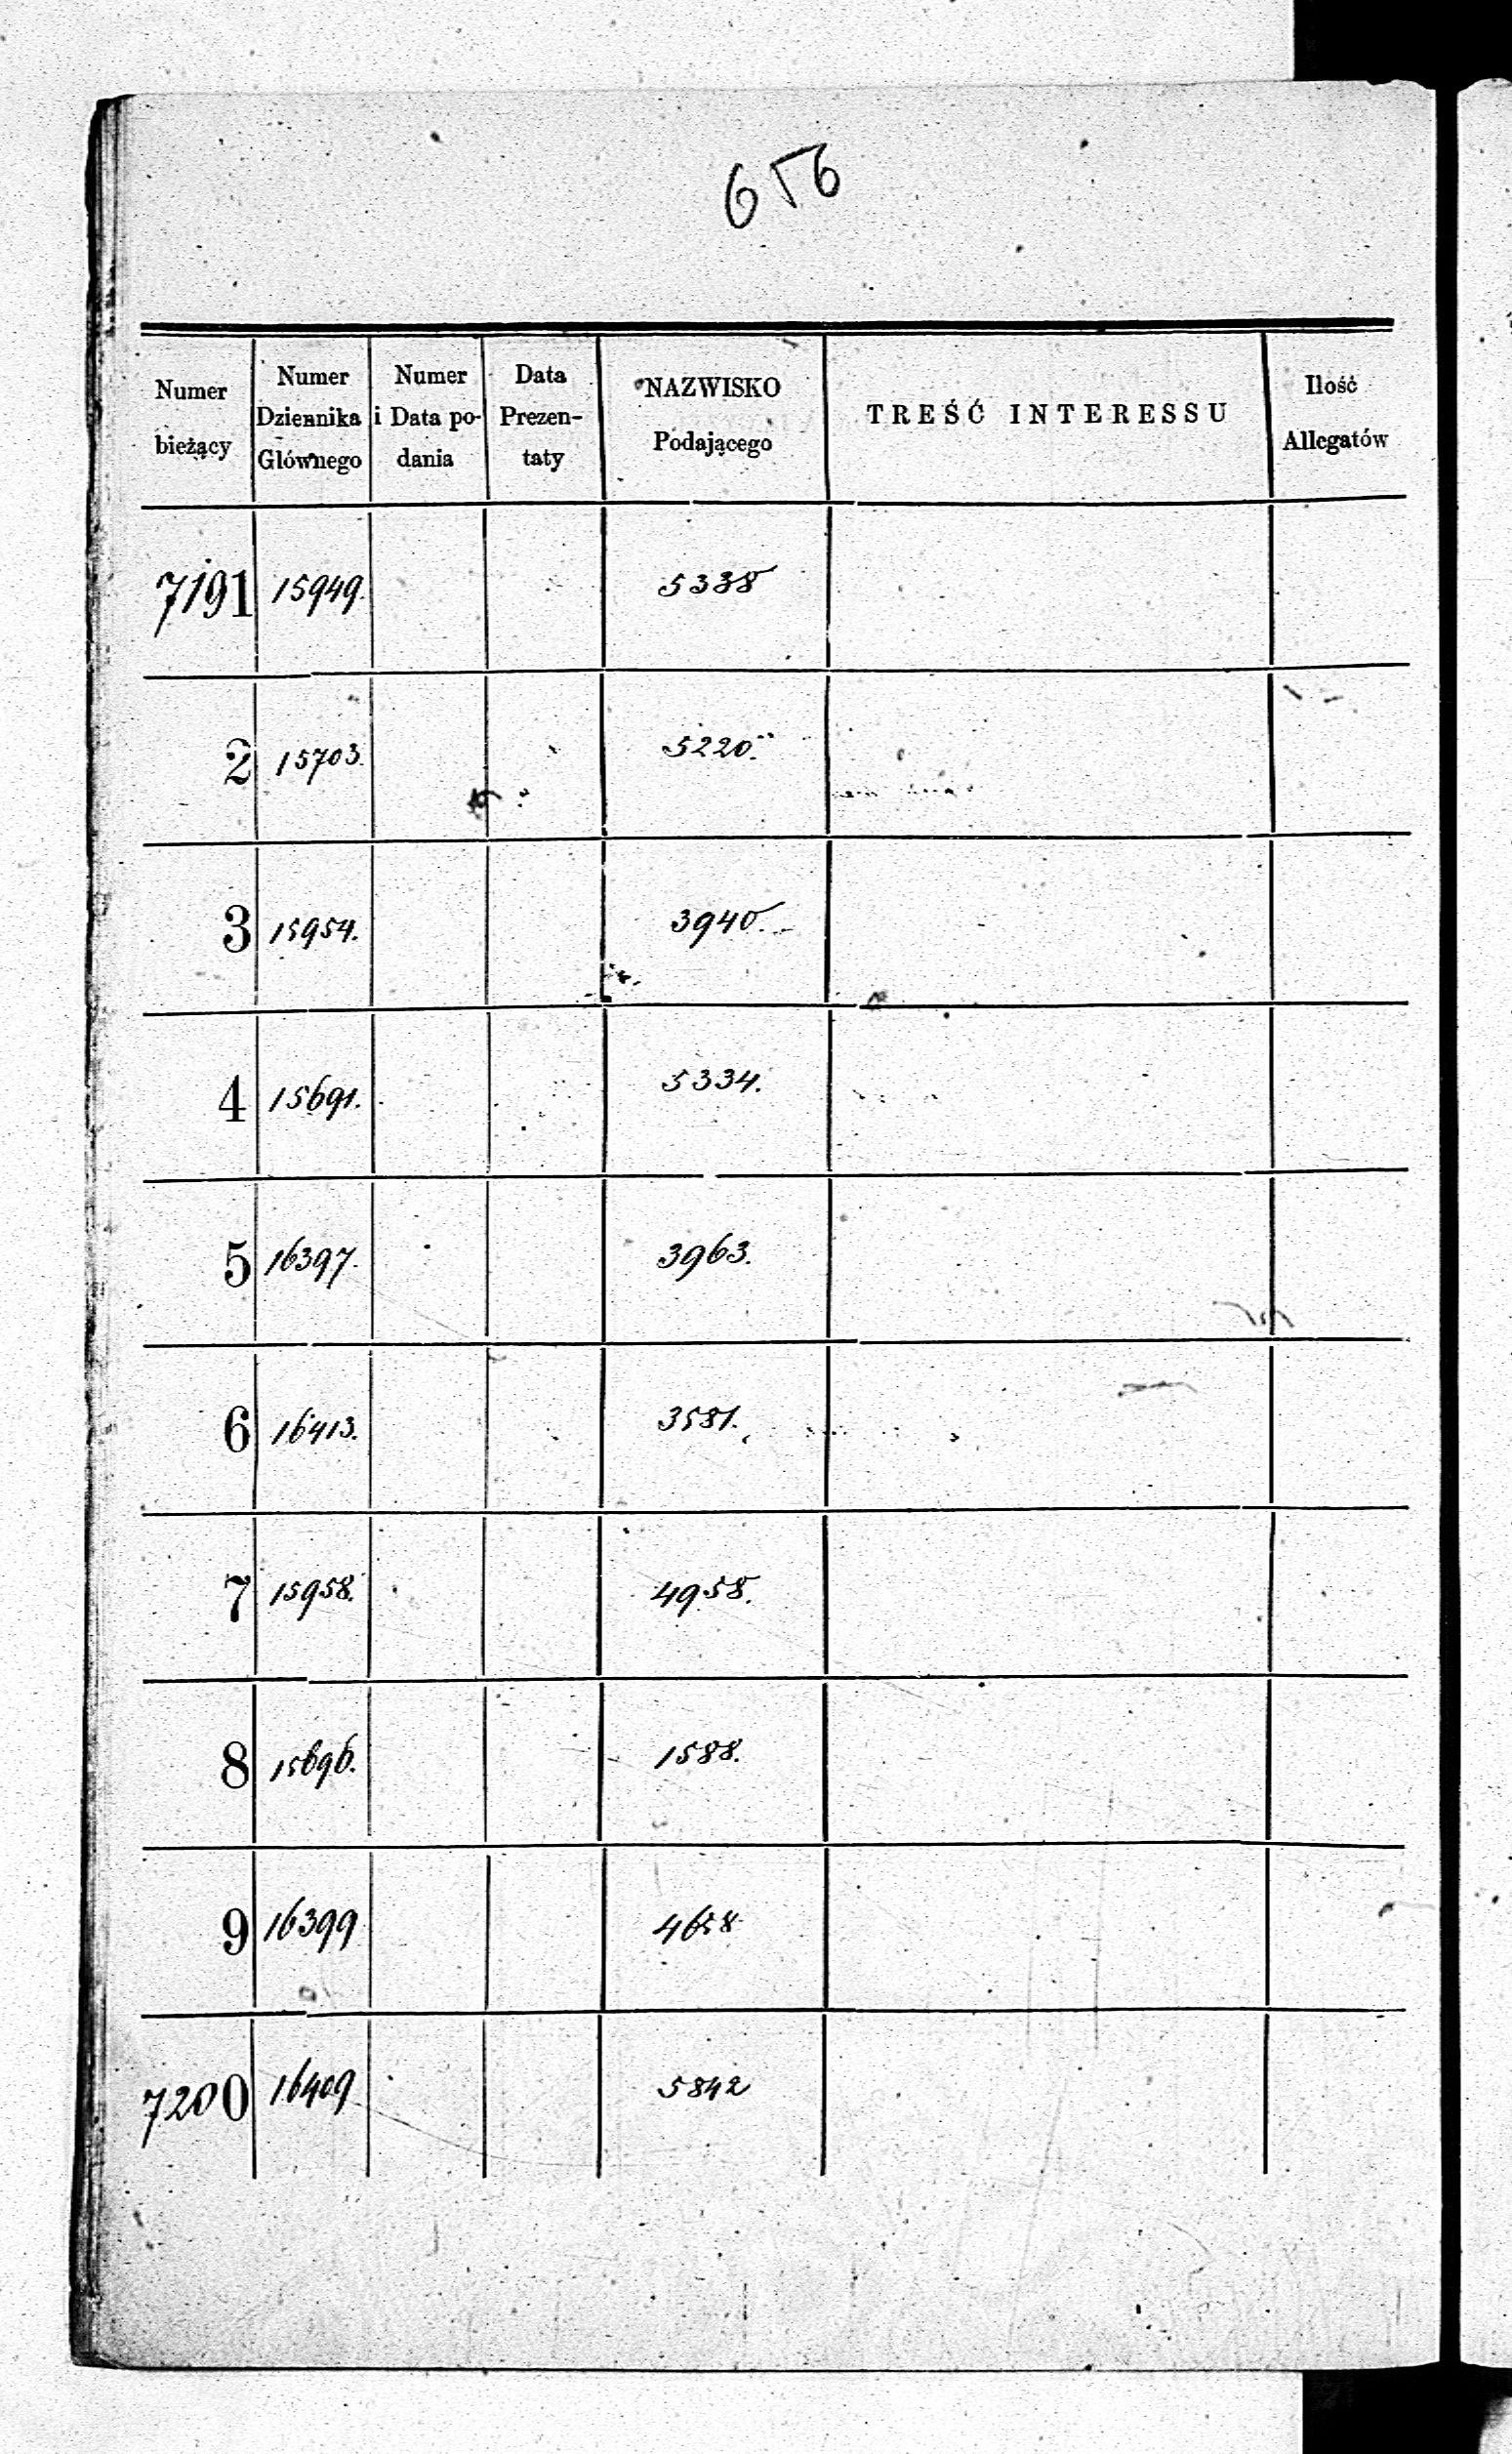 656
Numer bieżący | Numer Dziennika Głównego | Numer i Data podania | Data Prezentaty | NAZWISKO Podającego | TREŚĆ INTERESSU | Ilość Allegatów
7191 | 15949. | 5338
2 | 15703. | 5220.
3 | 15954. | 3940.
4 | 15691. | 5334.
5 | 16397. | 3963.
6 | 16413. | 3581.
7 | 15958. | 4958.
8 | 15696. | 1588.
9 | 16399 | 4658
7200 | 16409 | 5842